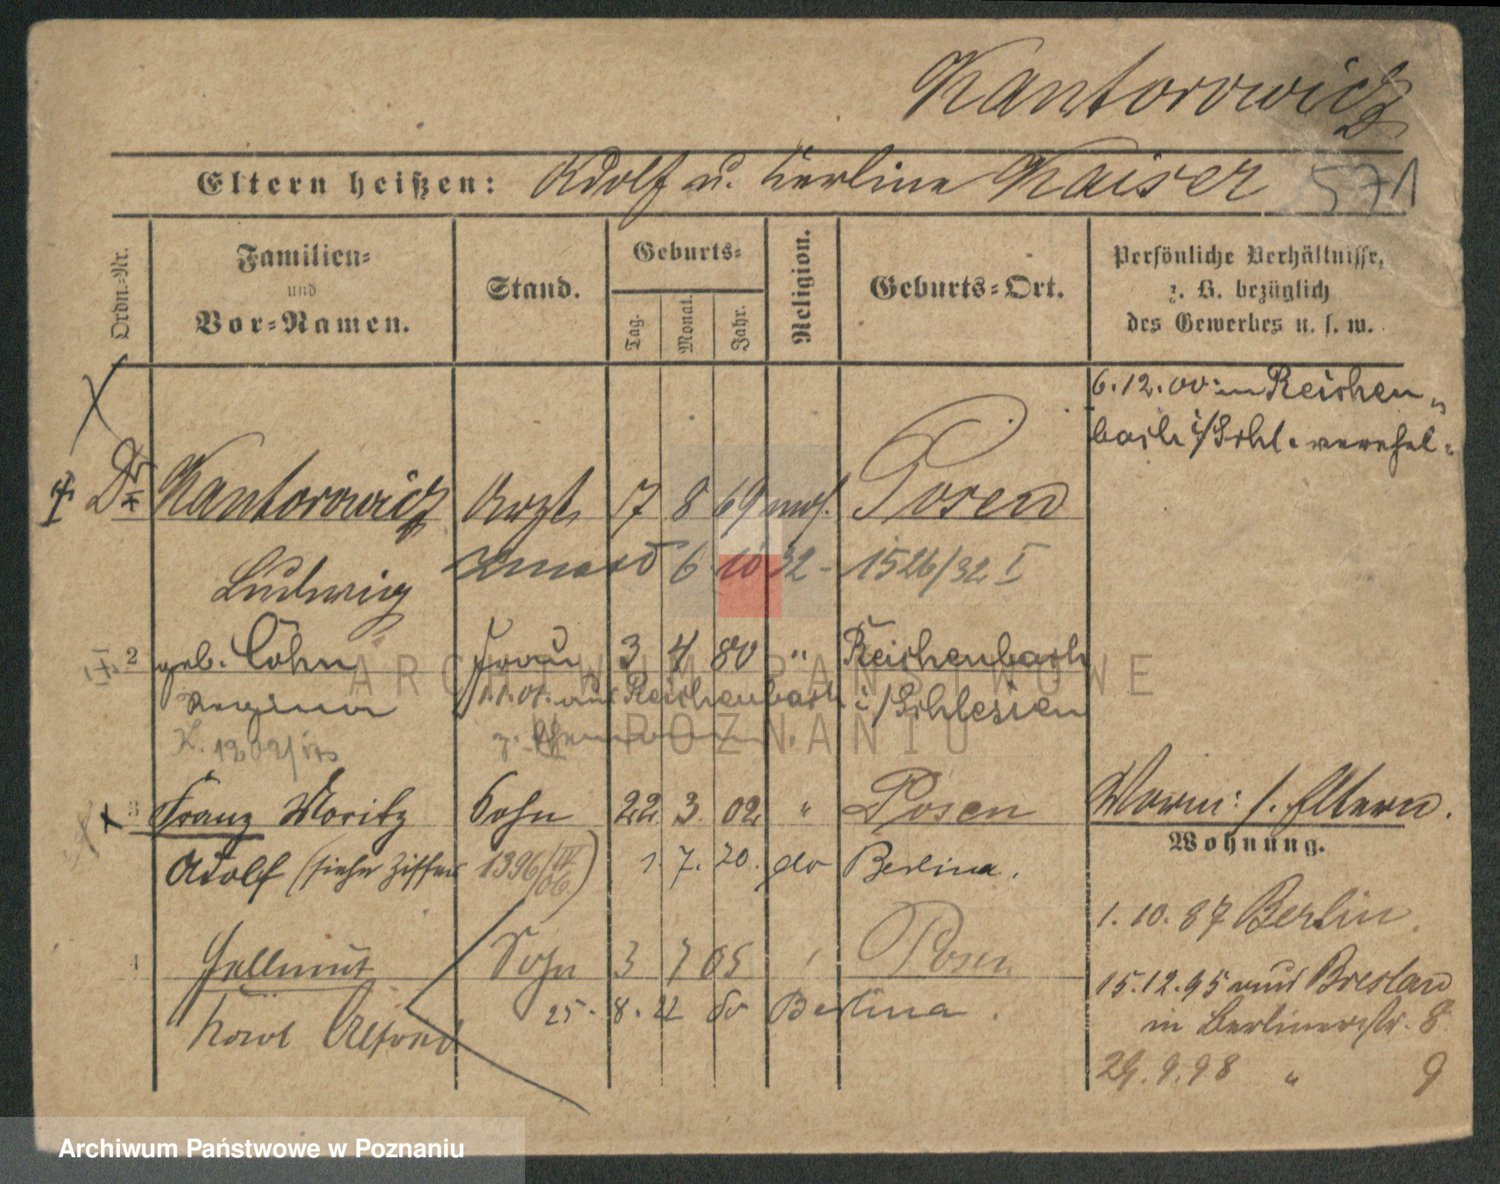 Kantorowicz
Eltern heißen: Adolf u. Kaiser 571
Ordn.-Nr.
Familien-
und
Vor-Namen.
Stand.
Geburts-
Tag.
Monat.
Jahr.
Religion.
Geburts-Ort.
Persönliche Verhältnisse,
z. B. bezüglich
des Gewerbes u. s. w.
6.12.00 in Reichen-
bach i/Schl. verehel.
Dr Kantorowicz Arzt 17 8 69 mos. Posen
Ludwig
6 10 32 - 1526/32 I
2 geb. Cohn Frau 3 4 80 " Reichenbach
Regina 1.1.01. aus Reichenbach i/Schlesien
3 Franz Moritz Sohn 22 3. 02 " Posen
Adolf (siehe Ziffer 1396/06) 1. 7. 20. do Berlin.
Hellmut Sohn 3 7 05 Posen
Alfred 25. 8. 22 do Berlin.
Worin: s. Eltern.
Wohnung.
1. 10. 87 Berlin.
15.12.95 aus Breslau
in Berlinerstr. 8
29. 9. 98 " 9
ARCHIWUM PAŃSTWOWE
W POZNANIU
Archiwum Państwowe w Poznaniu